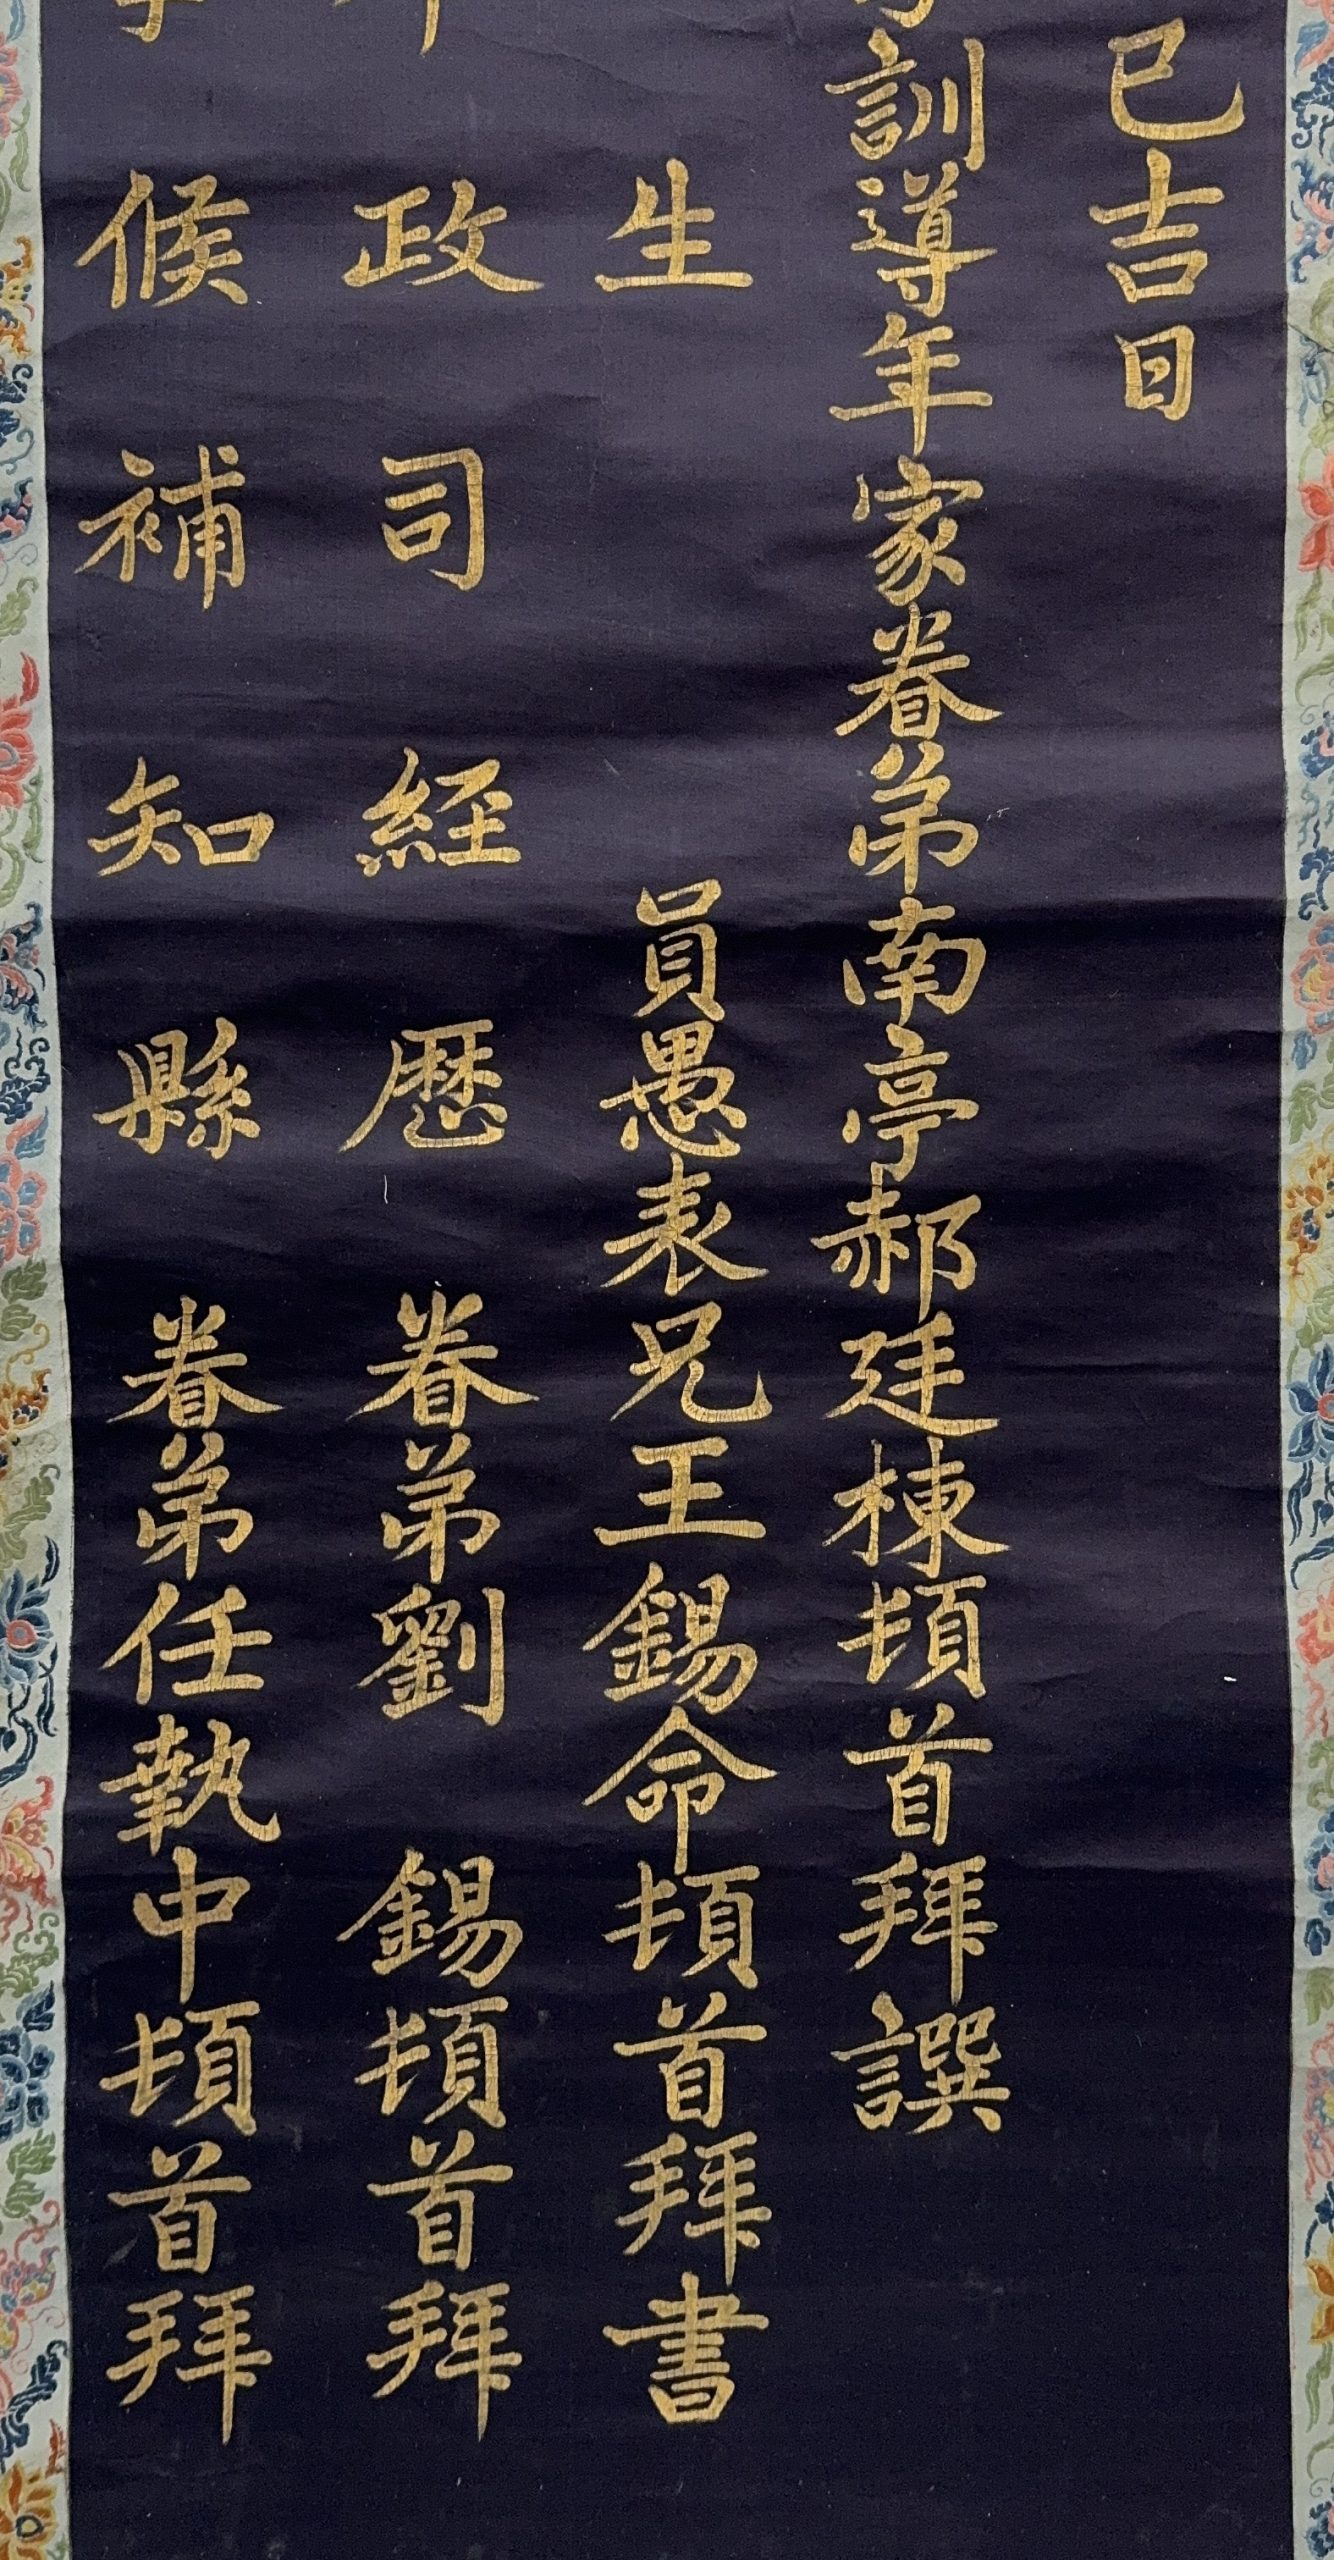 巳吉日
訓導年家眷弟南亭郝廷棟頓首拜譔
生員愚表兄王錫命頓首拜書
政司經歷眷弟劉錫頓首拜
候補知縣眷弟任執中頓首拜